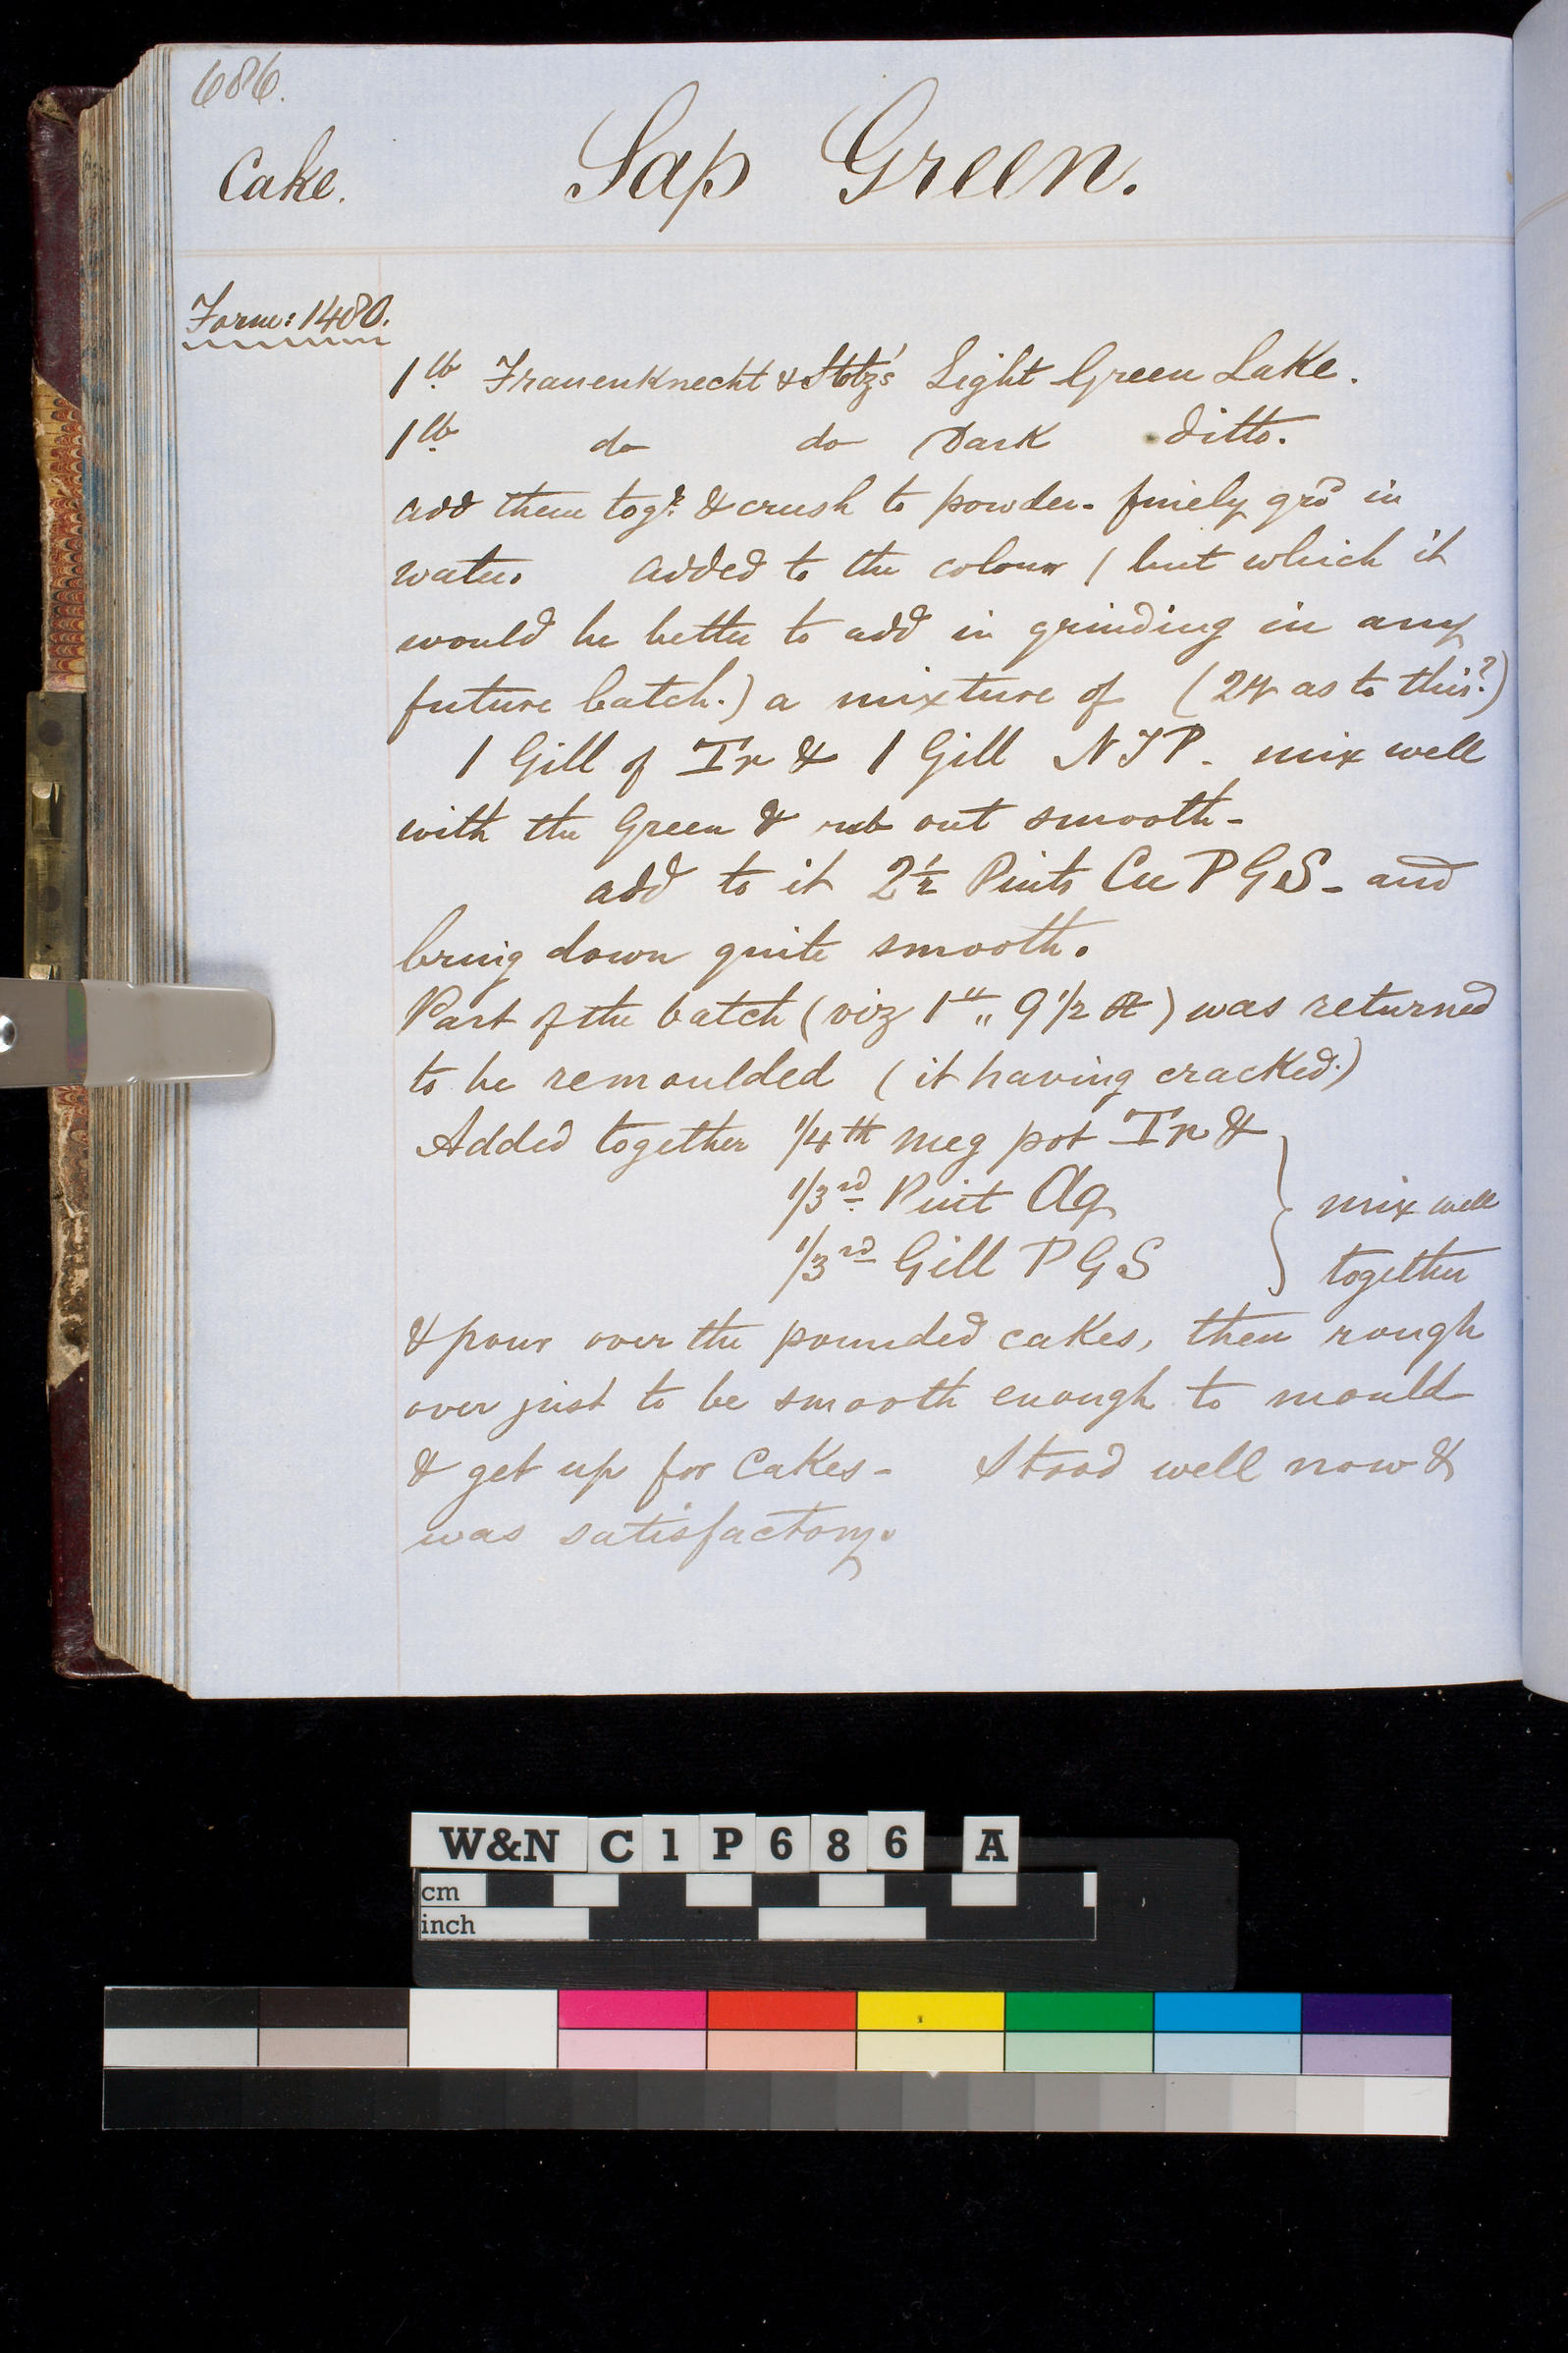 686.
Cake. Sap Green.
Form: 1480.
1 lb Frauenknecht & Stotz's Light Green Lake.
1 lb do do Dark ditto.
add them togr. & crush to powder. finely grd in
water. Added to the colour (but which it
would be better to add in grinding in any
future batch.) a mixture of ( as to this?)
1 Gill of Tr & 1 Gill NJP - mix well
with the Green & rub out smooth -
add to it 2 1/2 Pints Cu PGS - and
bring down quite smooth.
Part of the batch (viz 1 lb „ 9 1/2 oz) was returned
to be remoulded (it having cracked.)
Added together 1/4th meg pot Tr &
1/3rd Pint Aq
1/3rd Gill PGS
} mix well
together
& pour over the pounded cakes, then rough
over just to be smooth enough to mould
& get up for Cakes - Stood well now &
was satisfactory.
W&N C1P686 A
cm
inch